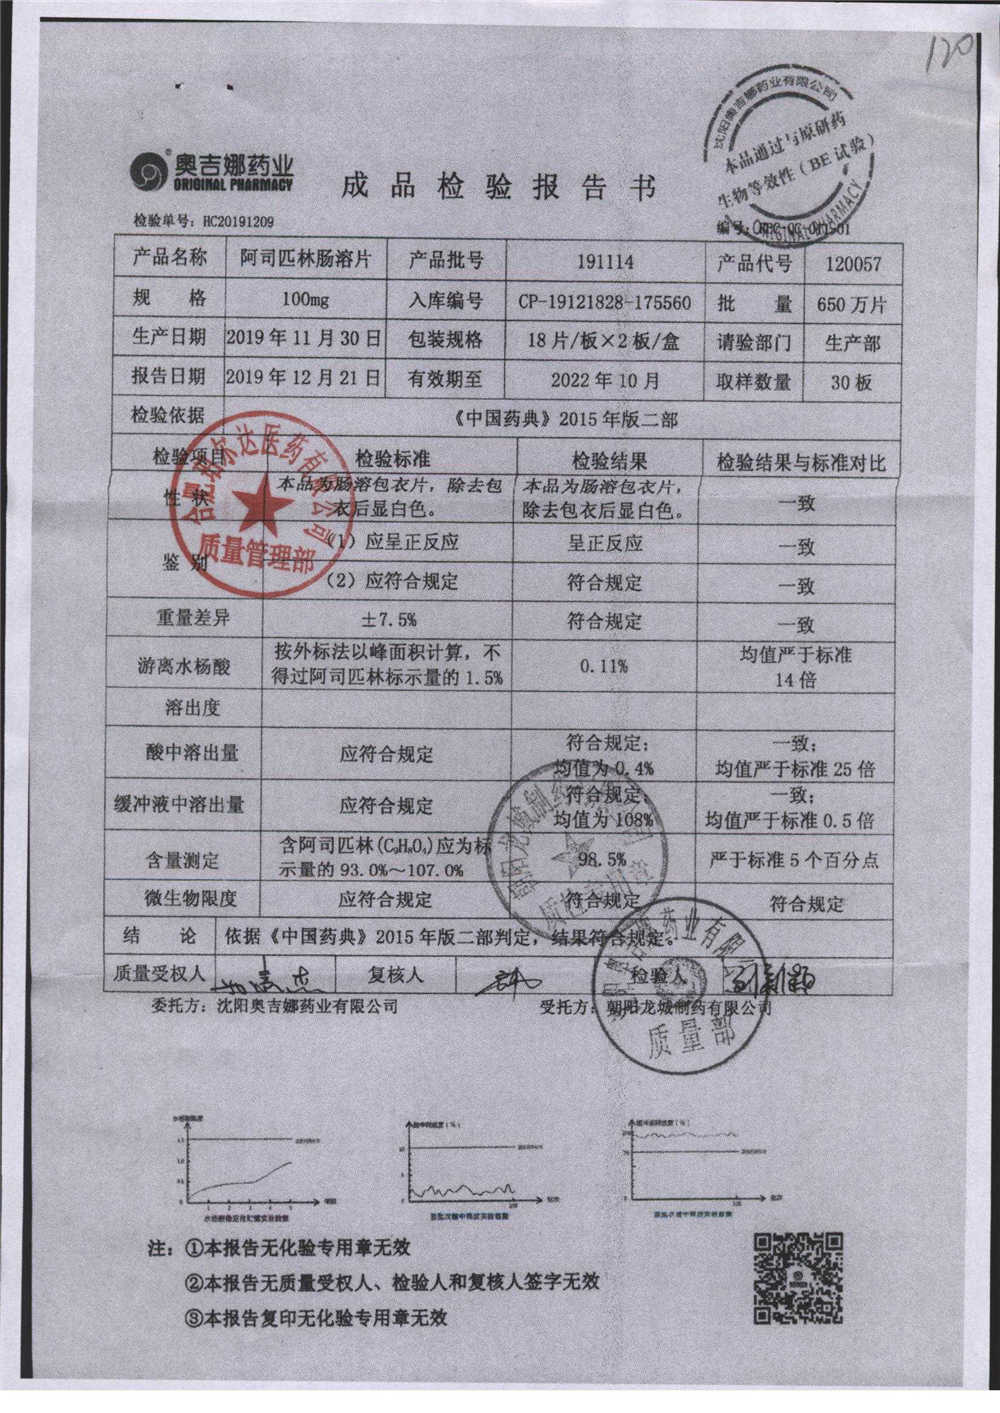 120
奥吉娜药业
ORIGINAL PHARMACY
成品检验报告书
沈阳奥吉娜药业有限公司
本品通过与原研药
生物等效性（BE试验）
ORIGINAL PHARMACY
检验单号：HC20191209
编号：
产品名称 阿司匹林肠溶片 产品批号 191114 产品代号 120057
规 格 100mg 入库编号 CP-19121828-175560 批 量 650万片
生产日期 2019年11月30日 包装规格 18片/板×2板/盒 请验部门 生产部
报告日期 2019年12月21日 有效期至 2022年10月 取样数量 30板
检验依据 《中国药典》2015年版二部
检验项目 检验标准 检验结果 检验结果与标准对比
性 状 本品为肠溶包衣片，除去包衣后显白色。 本品为肠溶包衣片，除去包衣后显白色。 一致
鉴 别 （1）应呈正反应 呈正反应 一致
（2）应符合规定 符合规定 一致
重量差异 ±7.5% 符合规定 一致
游离水杨酸 按外标法以峰面积计算，不得过阿司匹林标示量的1.5% 0.11% 均值严于标准14倍
溶出度
酸中溶出量 应符合规定 符合规定；均值为0.4% 一致；均值严于标准25倍
缓冲液中溶出量 应符合规定 符合规定；均值为108% 一致；均值严于标准0.5倍
含量测定 含阿司匹林(C₉H₈O₄)应为标示量的93.0%～107.0% 98.5% 严于标准5个百分点
微生物限度 应符合规定 符合规定 符合规定
结 论 依据《中国药典》2015年版二部判定，结果符合规定。
质量受权人 复核人 检验人
委托方：沈阳奥吉娜药业有限公司 受托方：朝阳龙城制药有限公司
医药有限公司
质量管理部
质量部
注：①本报告无化验专用章无效
②本报告无质量受权人、检验人和复核人签字无效
③本报告复印无化验专用章无效